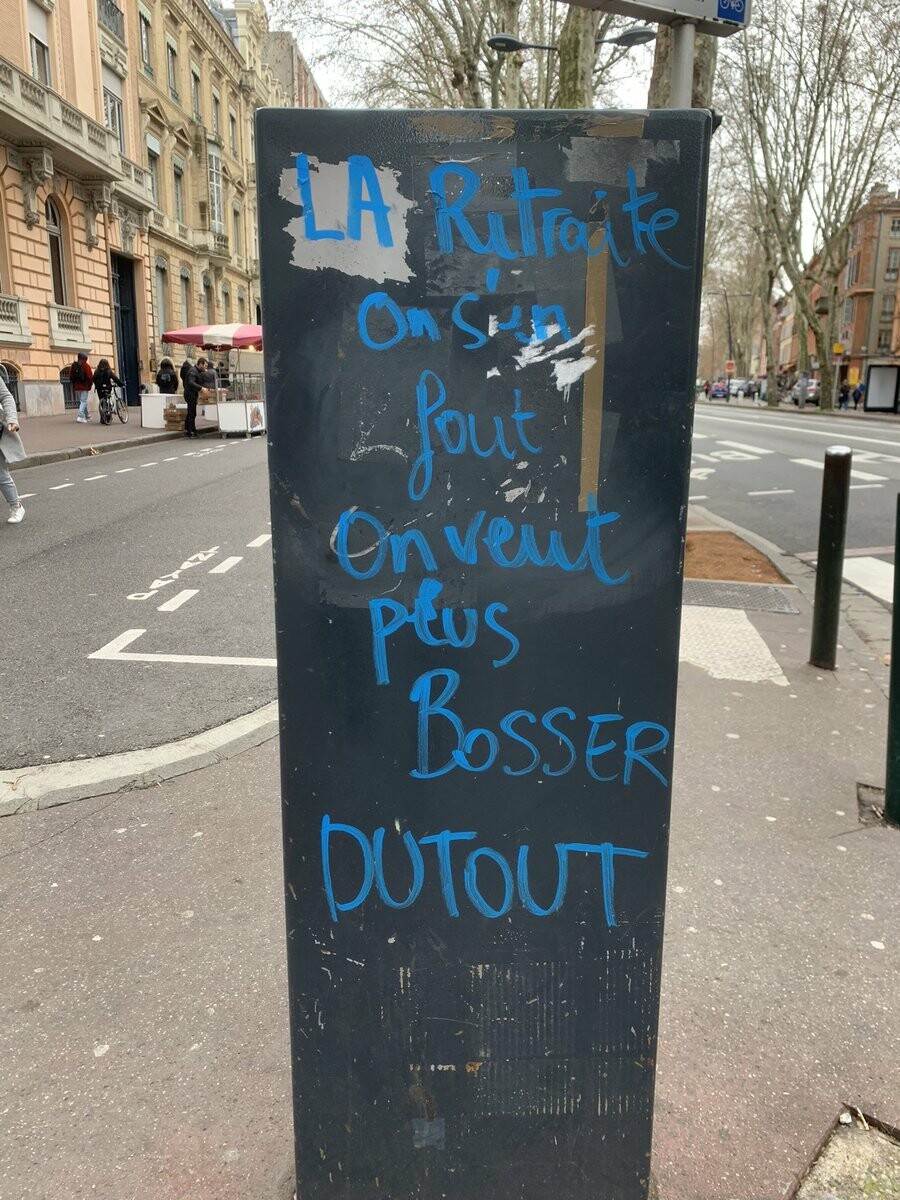 LA Retraite
on s'en
fout
on veut
plus
BOSSER
DUTOUT